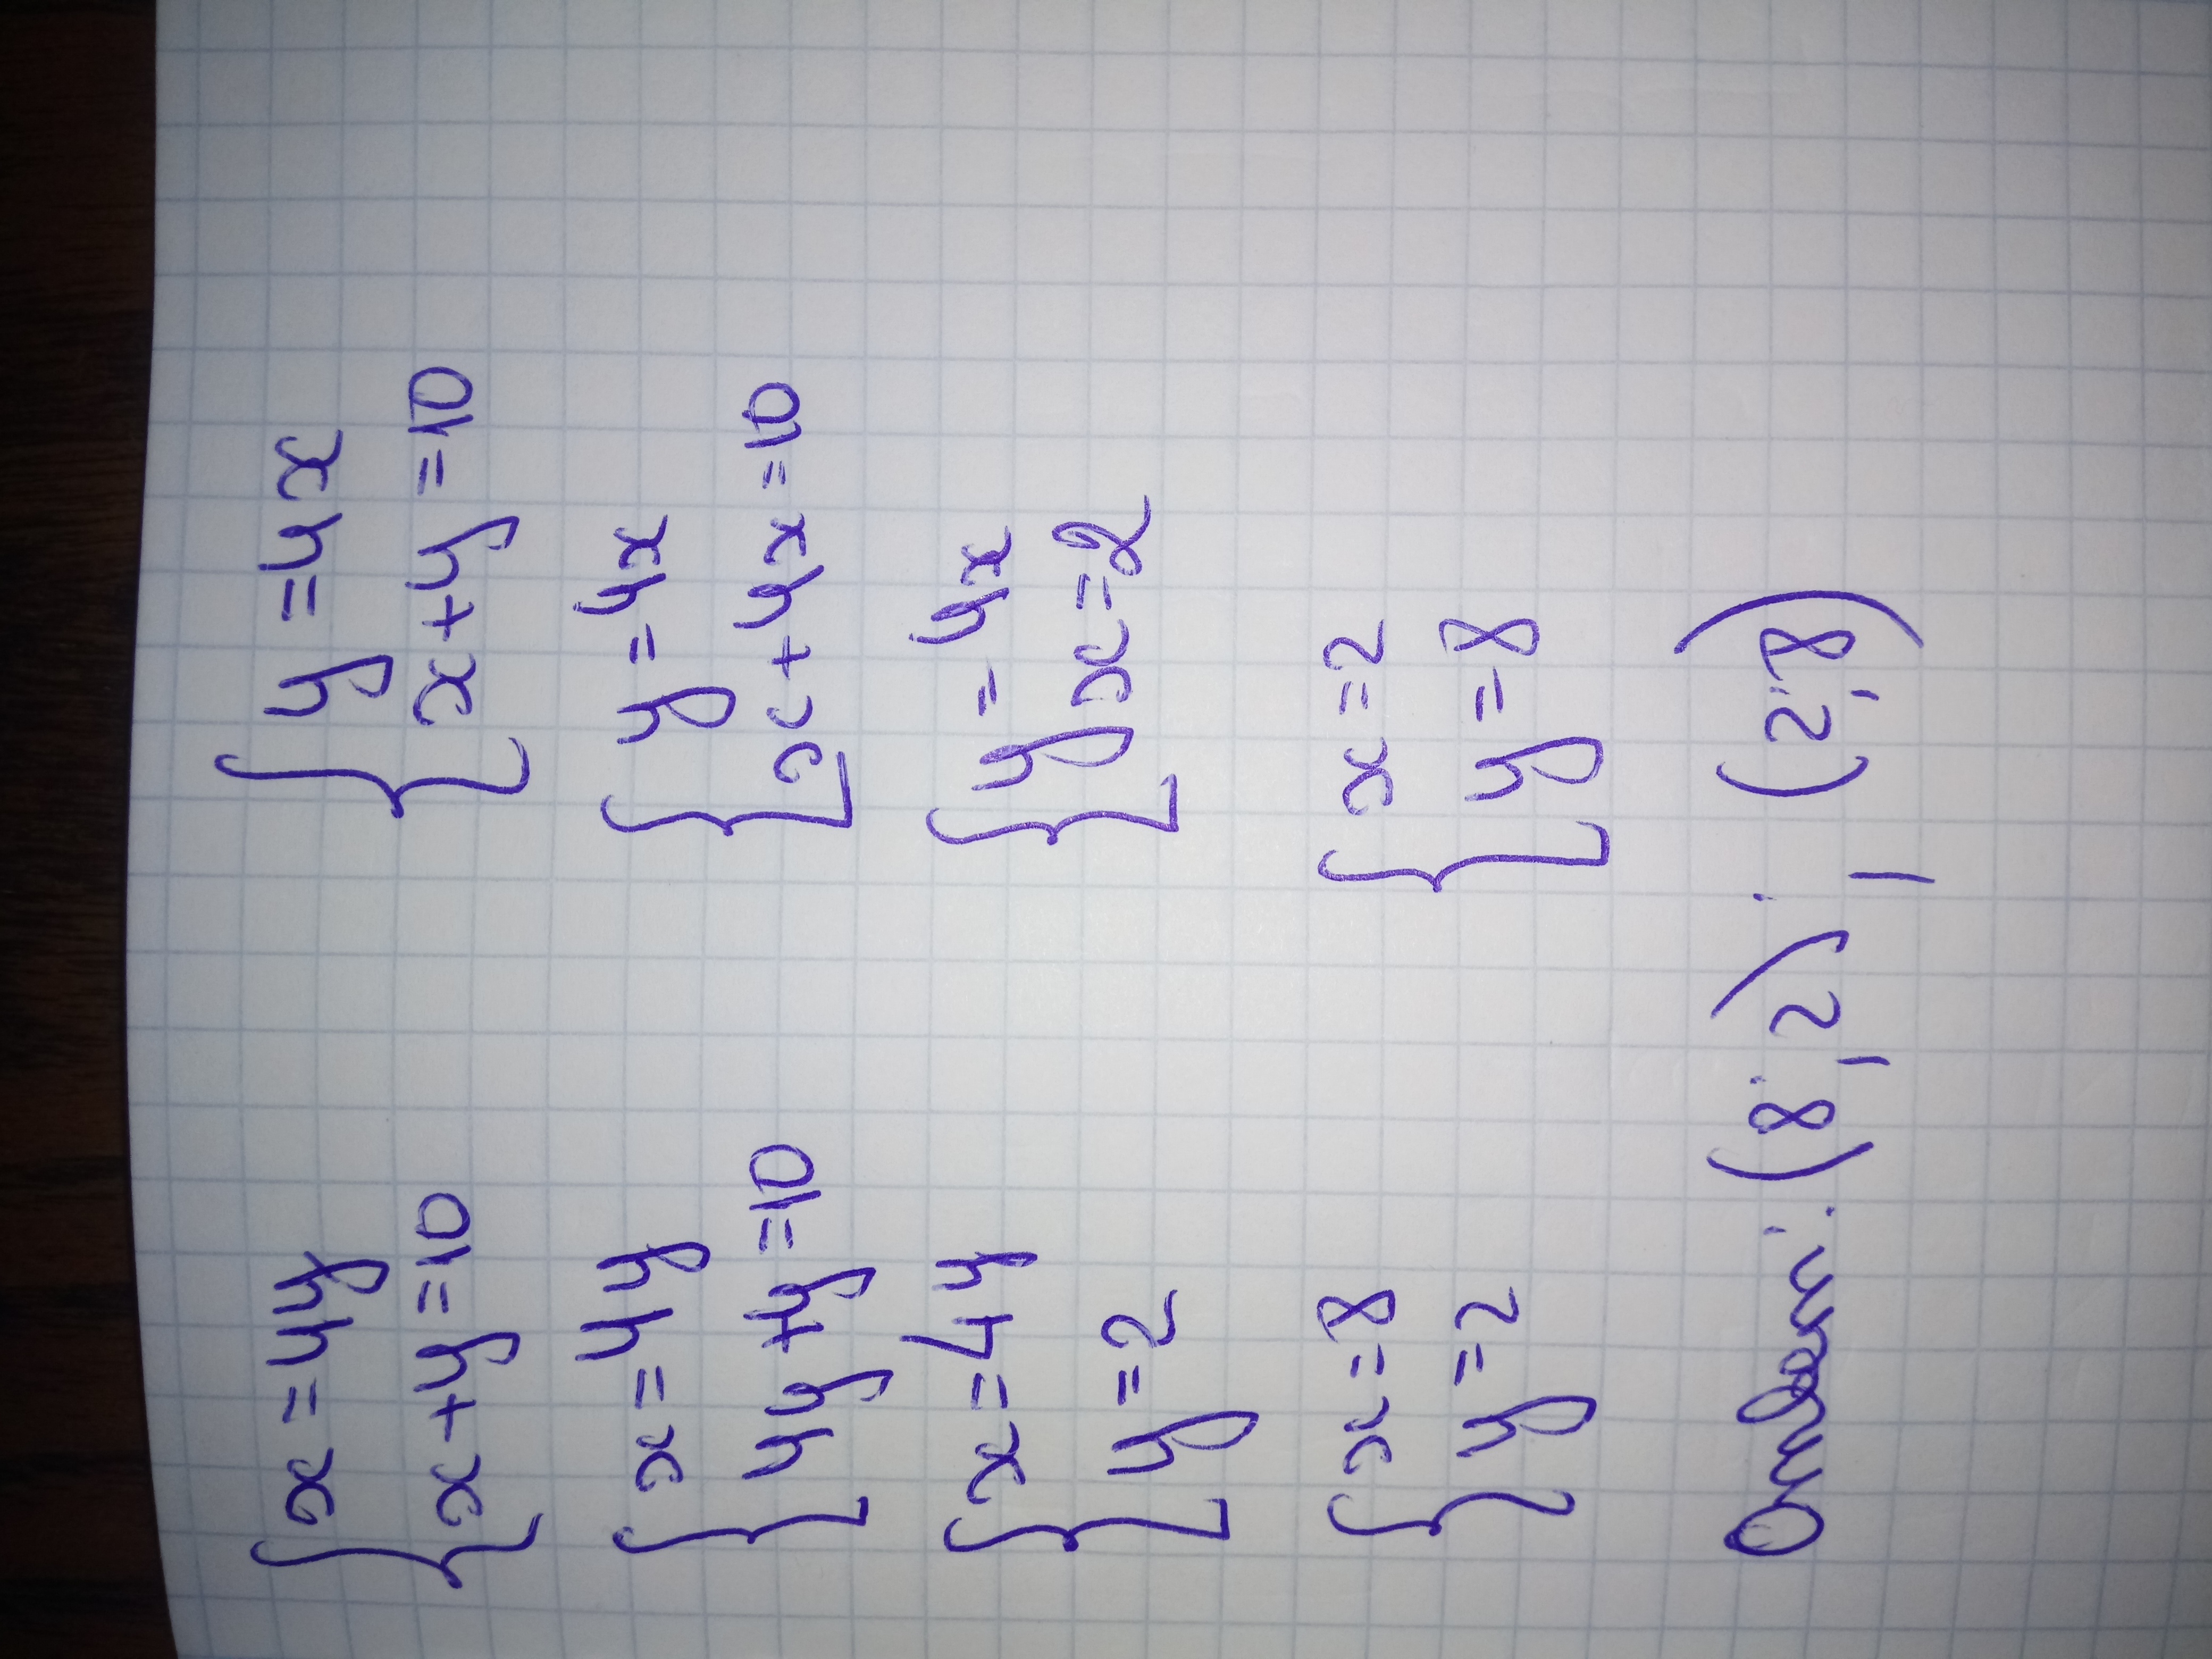 x = 4y
x + y = 10
x = 4y
4y + y = 10
x = 4y
y = 2
x = 8
y = 2
y = 4x
x + y = 10
y = 4x
x + 4x = 10
y = 4x
x = 2
x = 2
y = 8
Ответ: (8; 2); (2; 8)